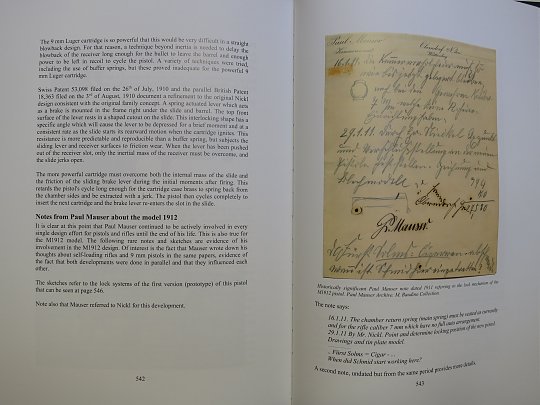 The 9 mm Luger cartridge is so powerful that this would be very difficult in a straight
blowback design. For that reason, a technique beyond inertia is needed to delay the
blowback of the receiver long enough for the bullet to leave the barrel and enough
power to be left in recoil to cycle the pistol. A variety of techniques were tried,
including the use of buffer springs, but these proved inadequate for the powerful 9
mm Luger cartridge.
Swiss Patent 53,098 filed on the 26th of July, 1910 and the parallel British Patent
18,363 filed on the 3rd of August, 1910 document a refinement to the original Nickl
design consistent with the original family concept. A spring actuated lever which acts
as a brake is mounted in the frame right under the slide and barrel. The top front
surface of the lever rests in a shaped cutout on the slide. This interlocking shape has a
specific angle which will cause the lever to be depressed for a brief moment and at a
consistent rate as the slide starts its rearward motion when the cartridge ignites. This
resistance is more predictable and reproducible than a buffer spring, but subjects the
sliding lever and receiver surfaces to friction wear. When the lever has been pushed
out of the receiver slot, only the inertial mass of the receiver must be overcome, and
the slide jerks open.
The more powerful cartridge must overcome both the internal mass of the slide and
the friction of the sliding brake lever during the initial moments after firing. This
retards the pistol's cycle long enough for the cartridge case brass to spring back from
the chamber sides and be extracted with a jerk. The pistol then cycles completely to
insert the next cartridge and the brake lever re-enters the slot in the slide.
Notes from Paul Mauser about the model 1912
It is clear at this point that Paul Mauser continued to be actively involved in every
single design effort for pistols and rifles until the end of his life. This is also true for
the M1912 model. The following rare notes and sketches are evidence of his
involvement in the M1912 design. Of interest is the fact that Mauser wrote down his
thoughts about self-loading rifles and 9 mm pistols in the same papers, evidence of
the fact that both developments were done in parallel and that they influenced each
other.
The sketches refer to the lock systems of the first version (prototype) of this pistol
that can be seen at page 546.
Note also that Mauser referred to Nickl for this development.
542
Paul Mauser
16.1.11.
29.1.11.
P. Mauser
Historically significant Paul Mauser note dated 1911 referring to the lock mechanism of the
M1912 pistol. Paul Mauser Archive, M. Baudino Collection.
The note says:
16.1.11. The chamber return spring (main spring) must be seated as currently
and for the rifle caliber 7 mm which have no full auto arrangement.
29.1.11 By Mr. Nickl. Point and determine locking position of the new pistol.
Drawings and tin plate model.
- Fürst Solms = Cigar - ..
When did Schmid start working here?
A second note, undated but from the same period provides more details.
543